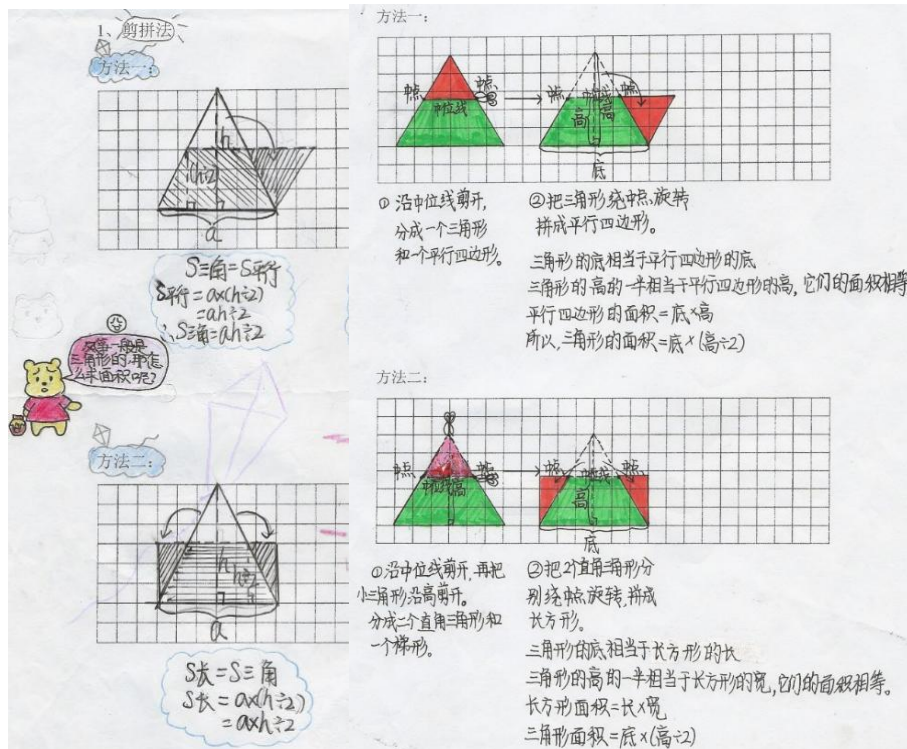 1、剪拼法
方法一：
h
h÷2
a
S三角=S平行
S平行=a×(h÷2)
=ah÷2
∴S三角=ah÷2
三角形的,那怎
么求面积呢?
方法二：
h
h÷2
a
S长=S三角
S长=a×(h÷2)
=a×h÷2
方法一：
中点
中点
中位线
中点
中位线
中点
高
高
底
①沿中位线剪开,
分成一个三角形
和一个平行四边形。
②把三角形绕中点旋转
拼成平行四边形。
三角形的底相当于平行四边形的底
三角形的高的一半相当于平行四边形的高,它们的面积相等
平行四边形的面积=底×高
所以,三角形的面积=底×(高÷2)
方法二：
中点
中点
中位线
高
中点
中位线
中点
高
底
①沿中位线剪开,再把
小三角形沿高剪开。
分成二个直角三角形和
一个梯形。
②把2个直角三角形分
别绕中点旋转,拼成
长方形。
三角形的底相当于长方形的长
三角形的高的一半相当于长方形的宽,它们的面积相等。
长方形面积=长×宽
三角形面积=底×(高÷2)